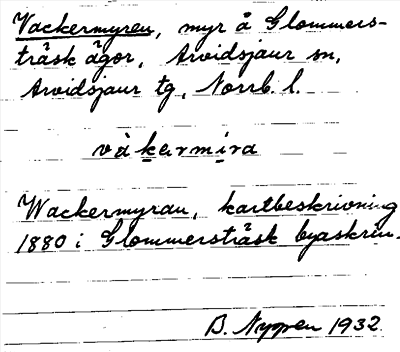 Vackermyren, myr å Glommers-
träsk ägor, Arvidsjaur sn,
Arvidsjaur tg, Norrb. l.
vàkermira
Wackermyran, kartbeskrivning
1880 i Glommersträsk byaskrin.
B. Nygren 1932